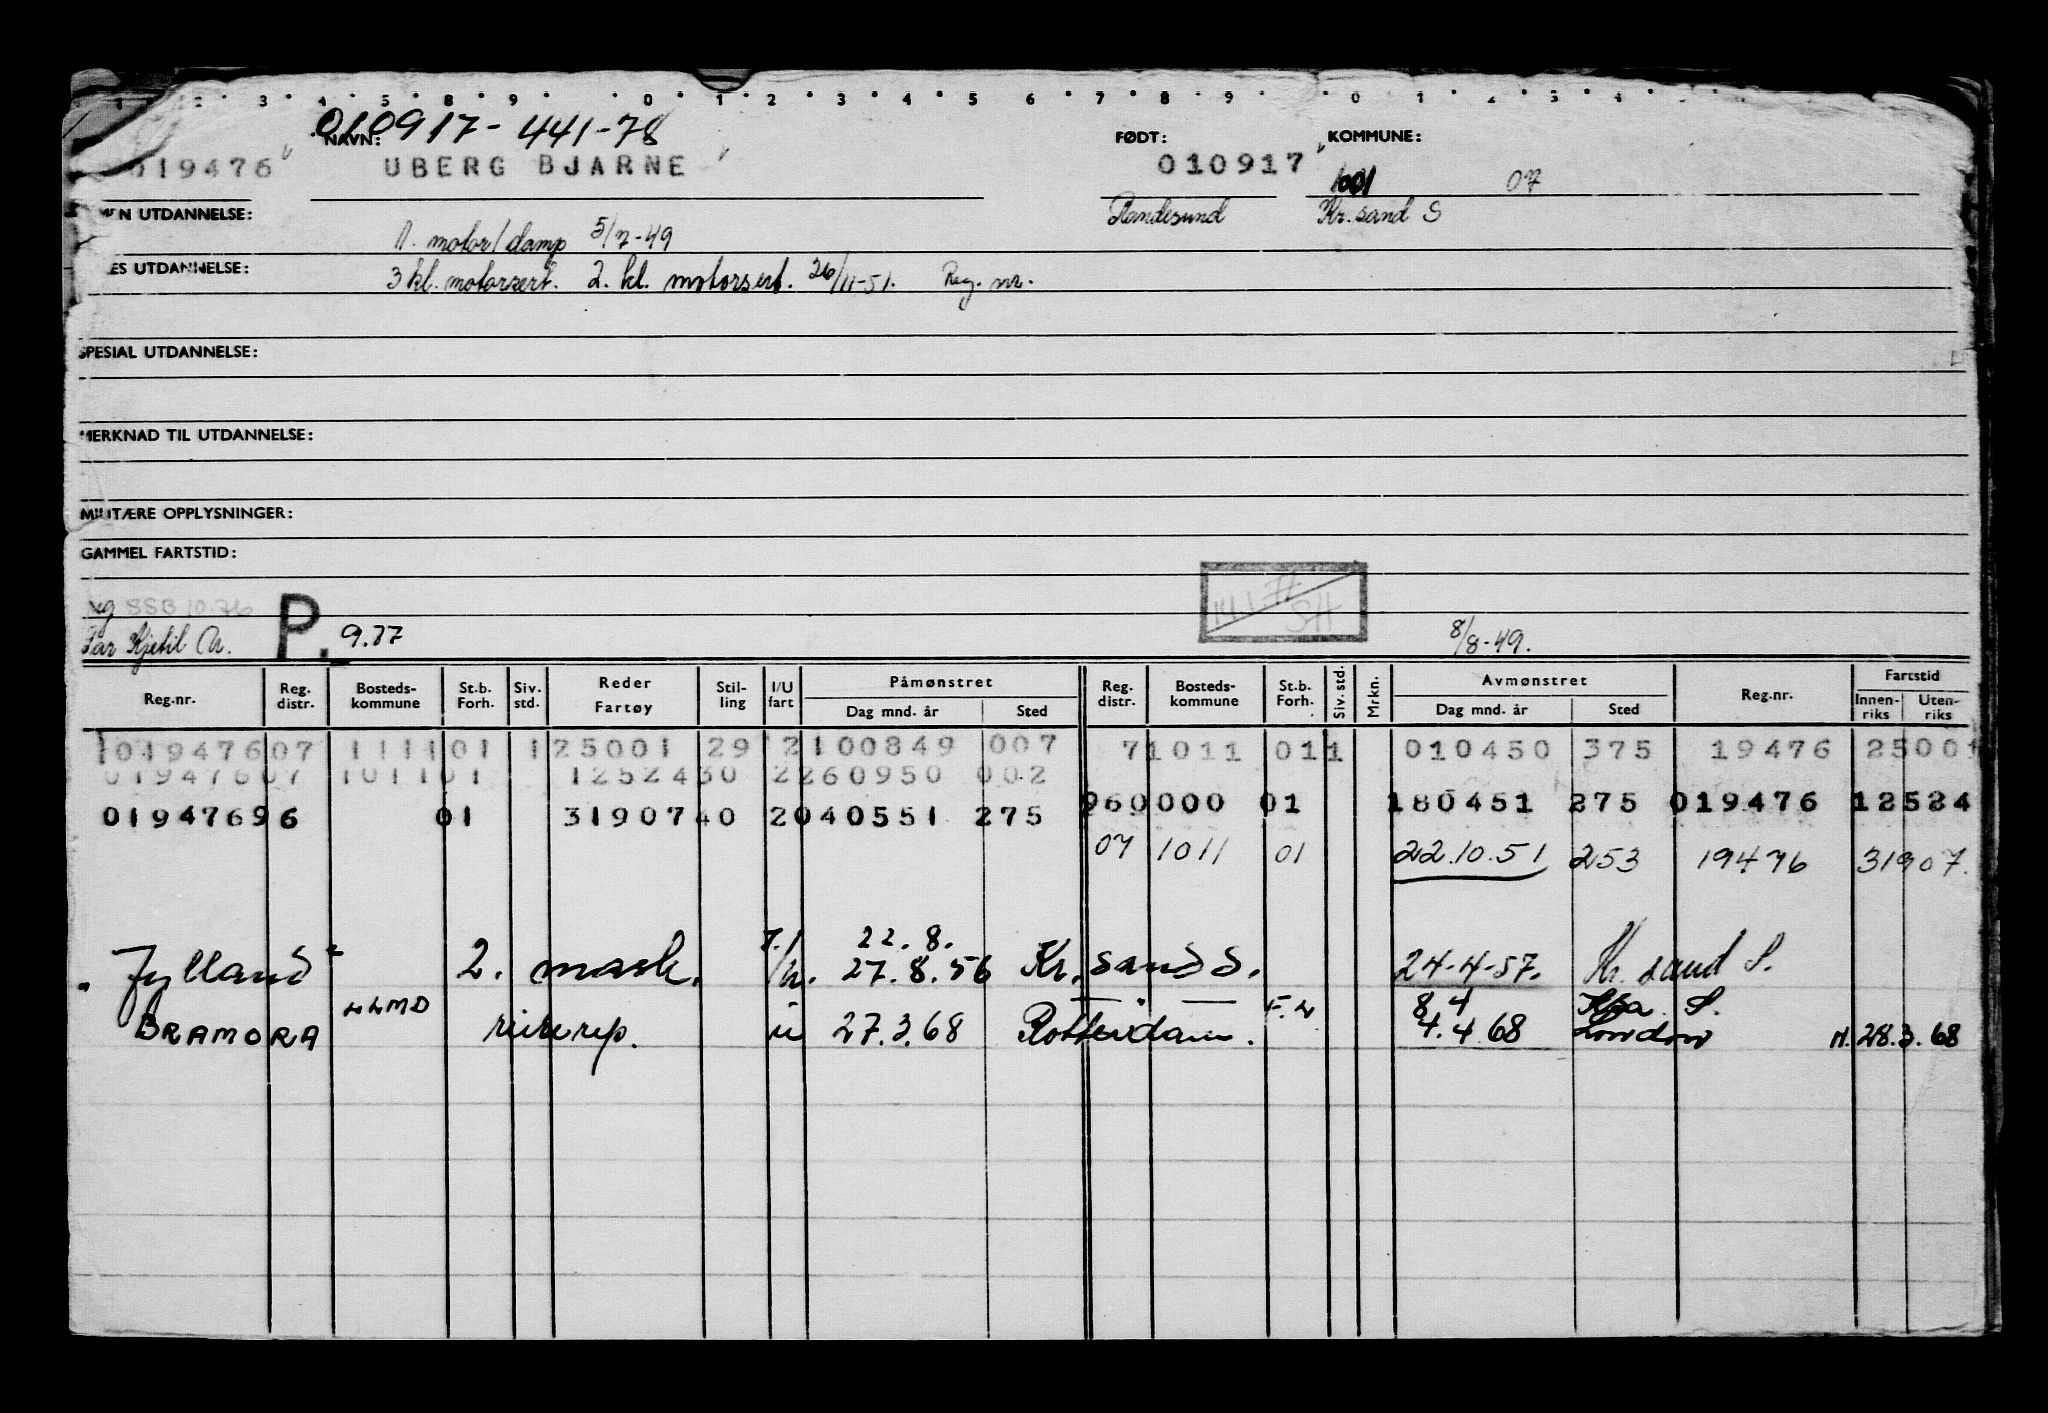 1 2 3 4 5 8 9 0 1 2 3 4 5 6 7 8 9 0 1 2 3 4
010917-441-78
NAVN: FØDT: KOMMUNE:
019476 UBERG BJARNE 010917 1001 07
Randesund Kr.sand S
UTDANNELSE:
motor/damp 5/7-49
UTDANNELSE: 3 kl. motorsert. 2. kl. motorsert. 26/11-51. Reg. nr.
SPESIAL UTDANNELSE:
MERKNAD TIL UTDANNELSE:
MILITÆRE OPPLYSNINGER:
GAMMEL FARTSTID:
SSB 10.76
Far Kjetil U. P. 9.77 8/8-49.
Reg.nr. Reg. distr. Bosteds-kommune St.b. Forh. Siv. std. Reder Fartøy Stil-ling I/U fart Påmønstret Dag mnd. år Sted Reg. distr. Bosteds-kommune St.b. Forh. Siv. std. Mrkn. Avmønstret Dag mnd. år Sted Reg.nr. Fartstid Innen-riks Uten-riks
101947607 111101 125001 29 2100849 007 71011 011 010450 375 19476 25001
019476 07 101101 1252430 2260950 002
960000 01 180451 275 019476 12524
01947696 01 3190740 2040551 275
07 1011 01 22.10.51 253 19476 31907.
22.8.
"Jylland" 2. mask. 27.8.56 Kr.sand S. 24-4-57. Kr.sand S.
LLMD 8 4 S.
BRAMORA rep. u 27.3.68 Rotterdam. 4.4 68 London M. 28.3.68